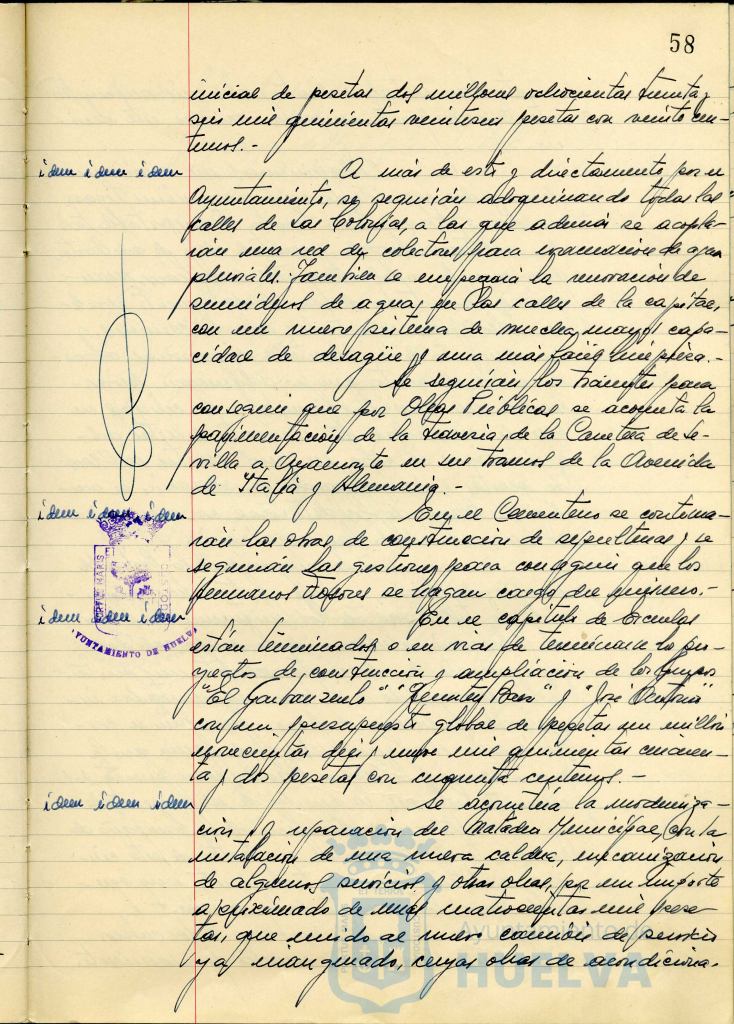 58
inicial de pesetas dos millones ochocientas treinta y
seis mil quinientas veintiseis pesetas con veinte cen-
timos.-
idem idem idem
A más de esto y directamente por el
Ayuntamiento, se seguirán adoquinando todas las
calles de Las Colonias, a las que además se acopla-
rán una red de colectores para evacuación de aguas
pluviales. También se empezará la renovación de
sumideros de aguas en las calles de la capital,
con un nuevo sistema de mucha mayor capa-
cidad de desagüe y una más fácil limpieza.-
Se seguirán los trámites para
conseguir que por Obras Públicas se acometa la
pavimentación de la travesía de la Carretera de Se-
villa a Ayamonte en sus tramos de la Avenida
de Italia y Alemania.-
idem idem idem
En el Cementerio se continua-
rán las obras de construcción de sepulturas y se
seguirán las gestiones para conseguir que los
Hermanos Fosores se hagan cargo del mismo.-
PORTUS MARIS ET TERRAE CUSTODIA
AYUNTAMIENTO DE HUELVA
idem idem idem
En el capítulo de Escuelas
están terminados o en vías de terminar los pro-
yectos de construcción y ampliación de los Grupos
"El Garbanzuelo" " " y "José Antonio"
con un presupuesto global de pesetas un millón
novecientas diez y nueve mil quinientas cincuen-
ta y dos pesetas con cincuenta centimos.-
idem idem idem
Se acometería la moderniza-
ción y reparación del Matadero Municipal, con la
instalación de una nueva caldera, mecanización
de algunos servicios y otras obras, por un importe
aproximado de unas cuatrocientas mil pese-
tas, que unido al nuevo camión de servicio
ya inaugurado, cuyas obras de acondiciona-
Ayuntamiento de
HUELVA